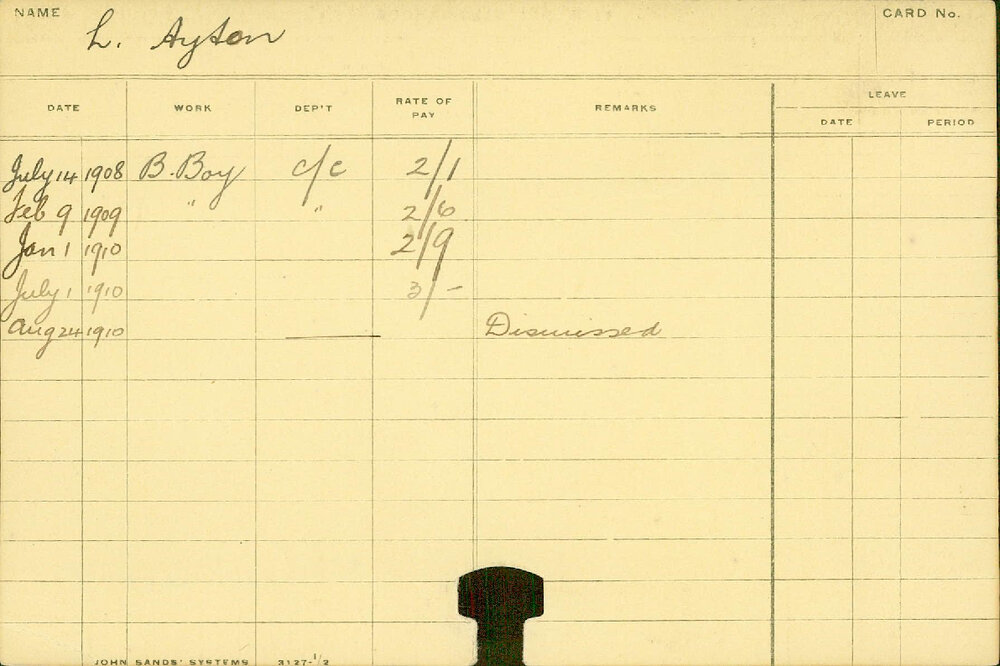 NAME L. Ayton CARD No.
DATE WORK DEP'T RATE OF PAY REMARKS LEAVE
DATE PERIOD
July 14 1908 B. Boy c/c 2/1
Feb 9 1909 " " 2/6
Jan 1 1910 2/9
July 1 1910 3/-
Aug 24 1910 Dismissed
JOHN SANDS' SYSTEMS 3127-1/2